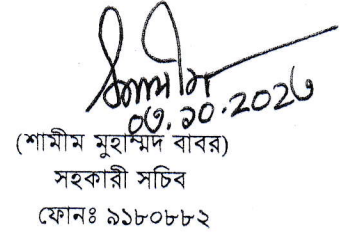 শামীম
০৩.১০.২০২৩
(শামীম মুহাম্মদ বাবর)
সহকারী সচিব
ফোনঃ ৯১৮০৮৮২